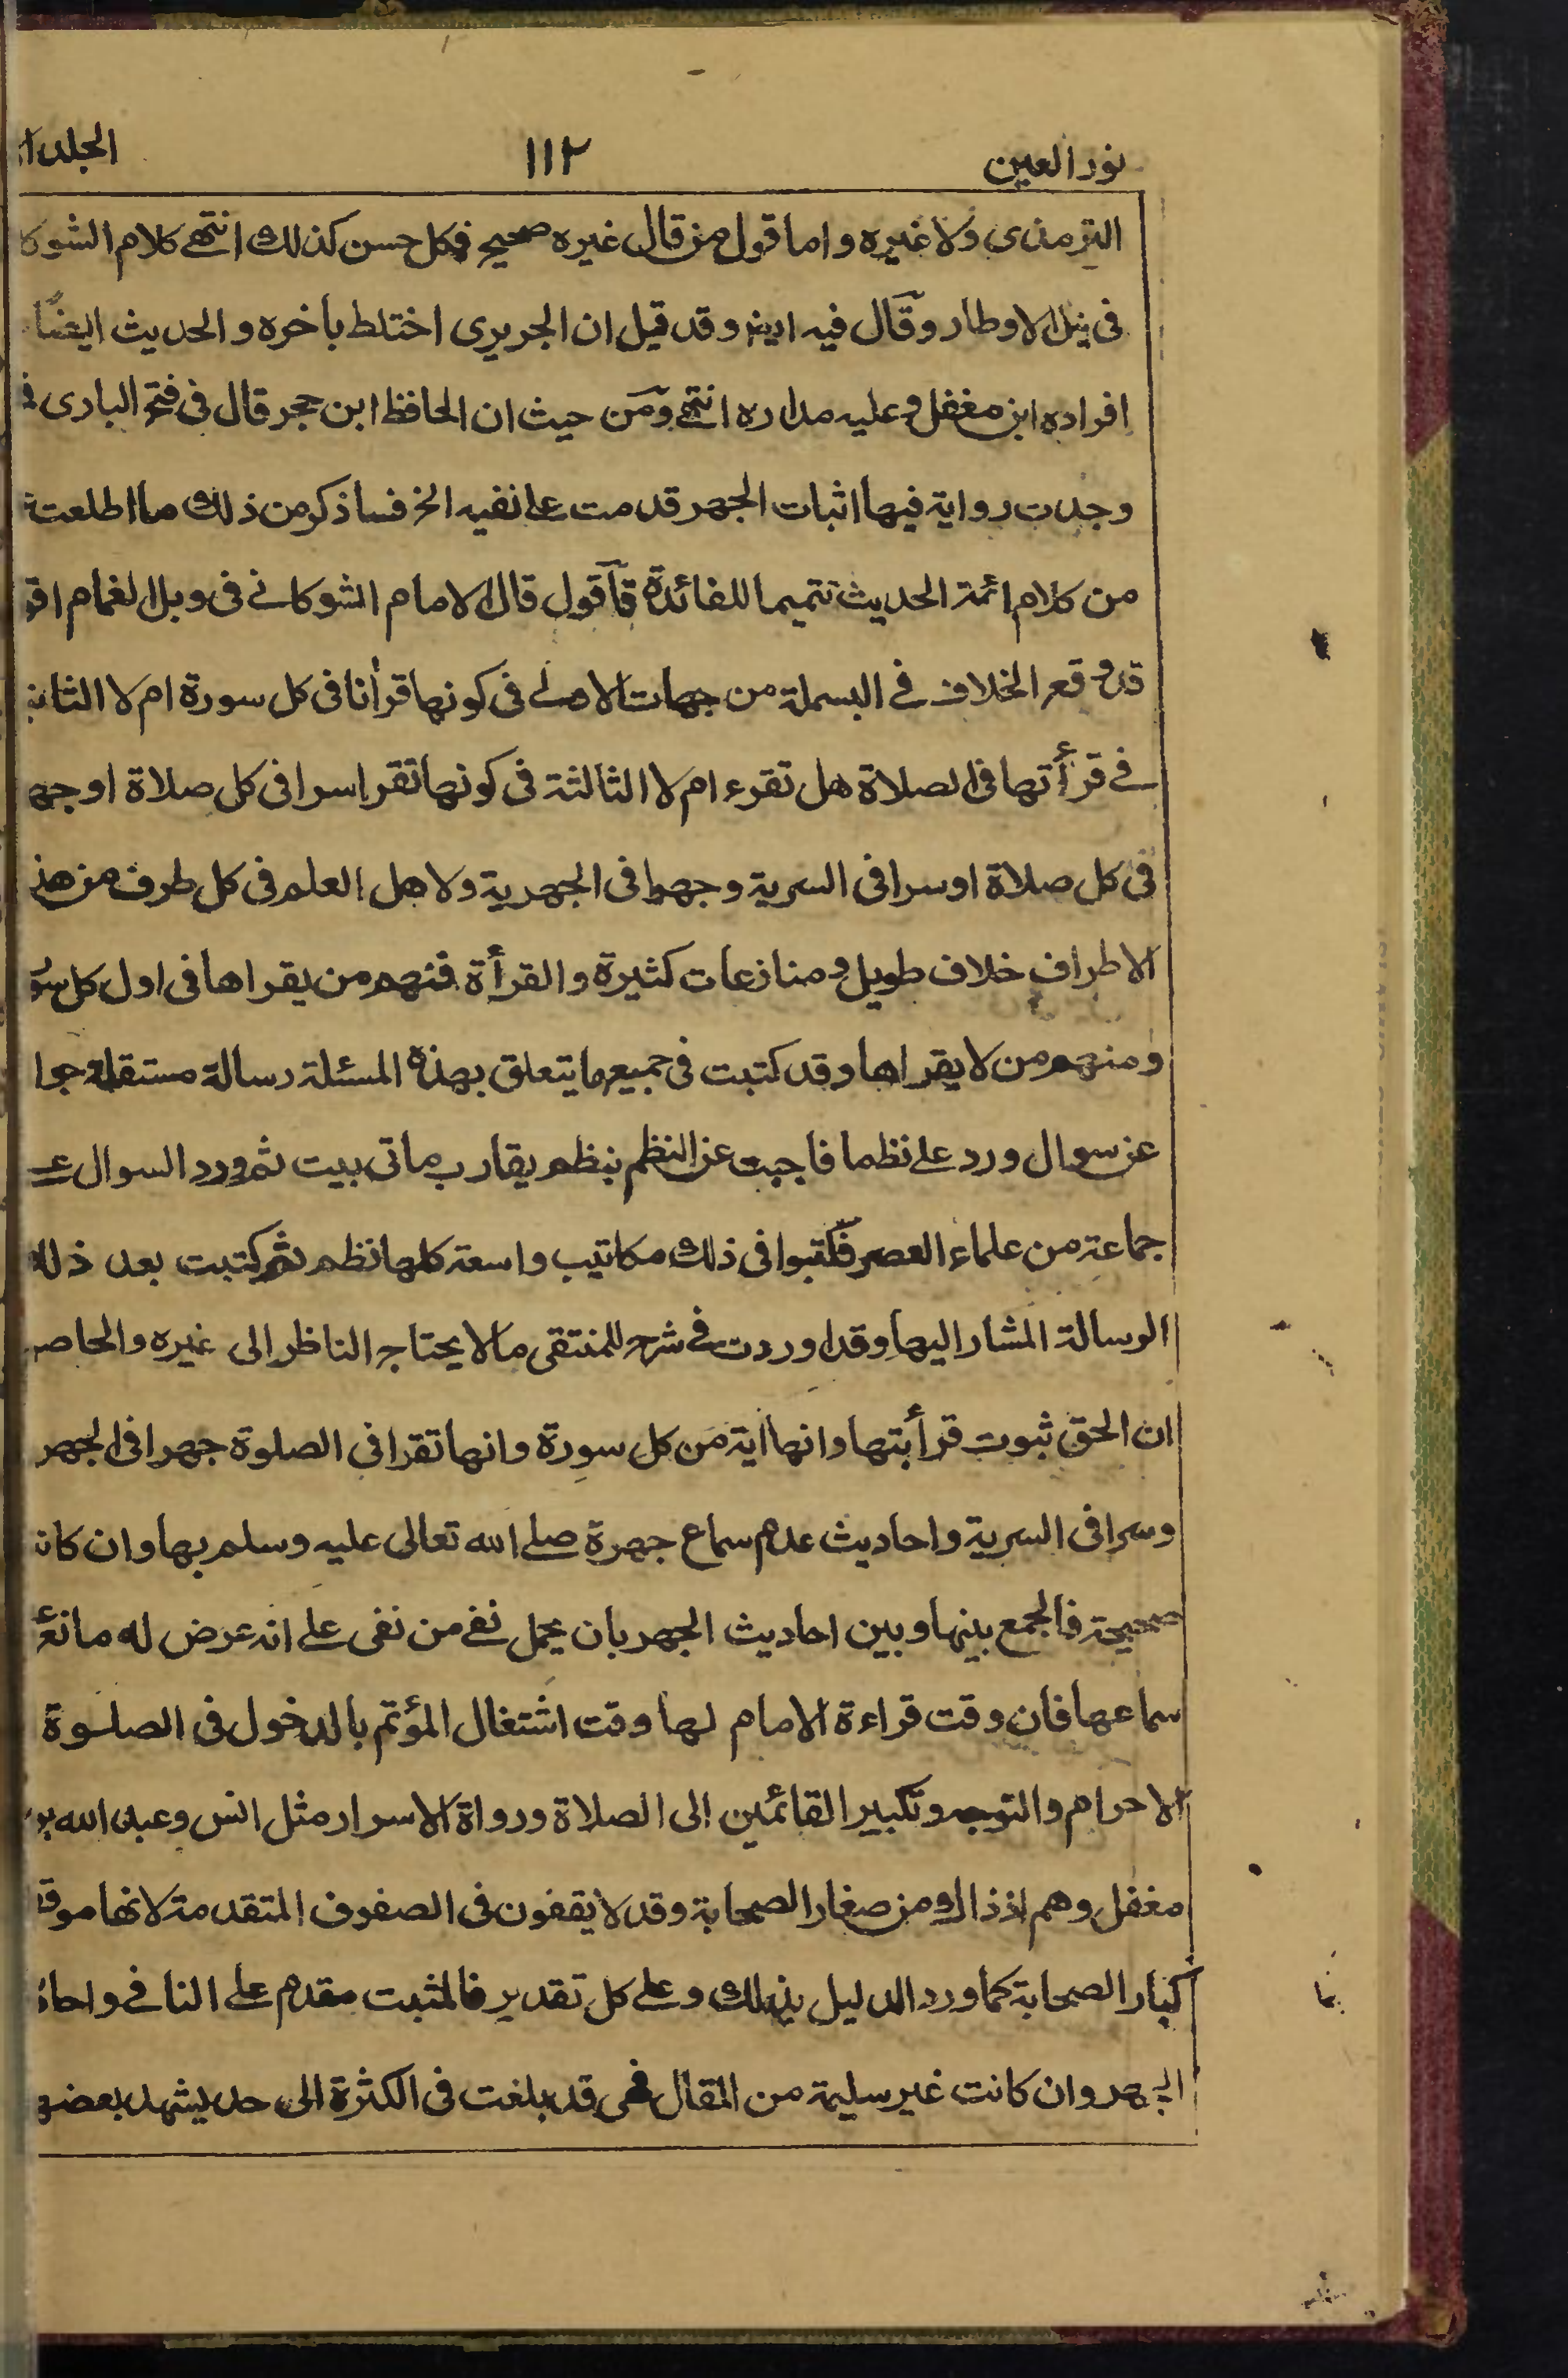 نور العين ١١٢ الجلد
الترمذى ولا غيره واما قول من قال غيره صحيح فكل حسن كذلك انتهى كلام
فى نيل الاوطار وقال فيه ايضا وقد قيل ان الجريرى اختلط بأخره والحديث ايضًا
افراده ابن مغفل وعليه مداره انتهى ومن حيث ان الحافظ ابن حجر قال فى فتح البارى
وجدت رواية فيها اثبات الجهر قدمت على نفيه الخ فساذكر من ذلك ما اطلعت
من كلام ائمة الحديث تتميما للفائدة فاقول قال الامام الشوكانى فى وبل الغمام
قد وقع الخلاف فى البسملة من جهات الاولى فى كونها قرأنا فى كل سورة ام لا
فى قرأتها فى الصلاة هل تقرء ام لا الثالثة فى كونها تقرا سرا فى كل صلاة او
فى كل صلاة او سرا فى السرية وجهرا فى الجهرية ولاهل العلم فى كل طرف من
الاطراف خلاف طويل ومنازعات كثيرة والقرأة فمنهم من يقراها فى اول كل
ومنهم من لا يقراها وقد كتبت فى جميع ما يتعلق بهذه المسئلة رسالة مستقلة
عن سوال ورد على نظما فاجبت عن النظم بنظم يقارب ماتى بيت ثم ورد السوال
جماعة من علماء العصر فكتبوا فى ذلك مكاتيب واسعة كلها نظم ثم كتبت بعد
الرسالة المشار اليها وقد اوردت فى شرح للمنتقى ما لا يحتاج الناظر الى غيره
ان الحق ثبوت قرأبتها وانها اية من كل سورة وانها تقرا فى الصلوة جهرا فى الجهر
وسرا فى السرية واحاديث عدم سماع جهرة صلى الله تعالى عليه وسلم بها وان
صحيحة فالجمع بينها وبين احاديث الجهر بان يحمل نفى من نفى على انه عرض له
سماعها فان وقت قراءة الامام لها وقت اشتغال المؤتم بالدخول فى الصلوة
الاحرام والتوجه وتكبير القائمين الى الصلاة ورواة الاسرار مثل انس وعبد الله
مغفل وهم اذ ذاك من صغار الصحابة وقد لا يقفون فى الصفوف المتقدمة لانها
كبار الصحابة كما ورد الدليل بذلك وعلى كل تقدير فالمثبت مقدم على النافى
الجهر وان كانت غير سليمة من المقال فهى قد بلغت فى الكثرة الى حد يشهد